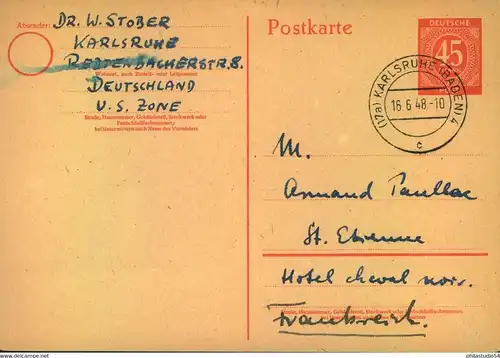 Absender: Dr. W. Stober
Karlsruhe
Redtenbacherstr. 8.
Wohnort, auch Zustell- oder Leitpostamt
Deutschland
U.S. Zone
Straße, Hausnummer, Gebäudeteil, Stockwerk oder
Postschließfachnummer;
bei Untermietern auch Name des Vermieters
Postkarte
DEUTSCHE
45
(17a) KARLSRUHE (BADEN) 4
16.6.48.-10
c
M.
Armand Paullac
St. Etienne
Hotel cheval noir.
Straße, Hausnummer, Gebäudeteil, Stockwerk oder Postschließfachnummer;
Frankreich.